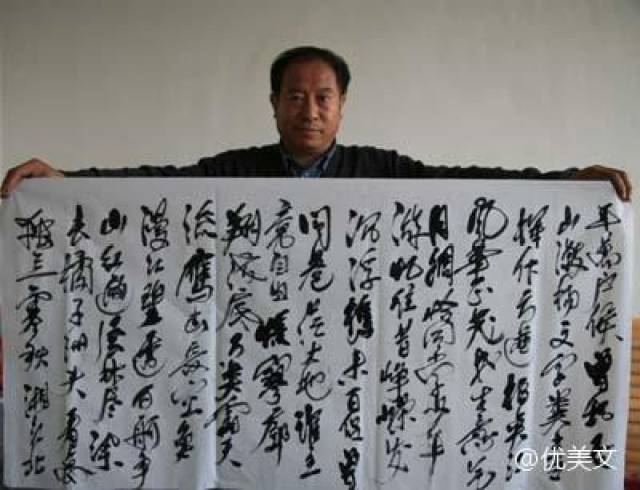 独立寒秋湘江北
去橘子洲头看万
山红遍层林尽染
漫江碧透百舸争
流鹰击长空鱼
翔浅底万类霜天
竞自由怅寥廓
问苍茫大地谁主
沉浮携来百侣曾
游忆往昔峥嵘岁
月稠恰同学少年
风华正茂书生意气
挥斥方遒指点江
山激扬文字粪土
年万户侯曾记
@优美文